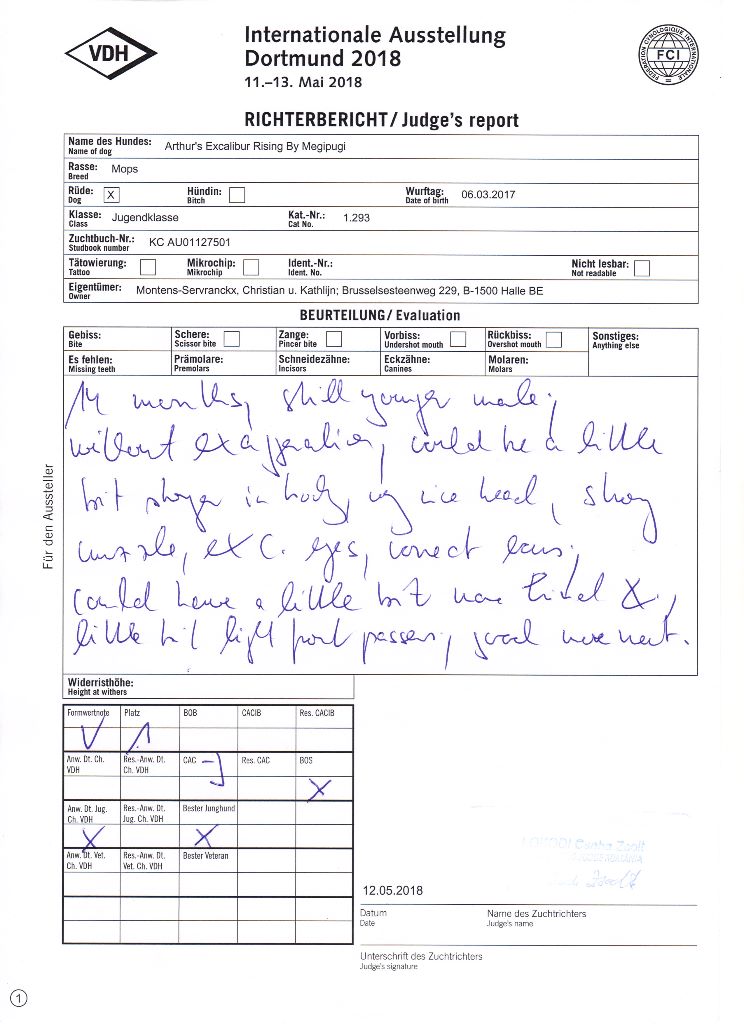 VDH
Internationale Ausstellung
Dortmund 2018
11.–13. Mai 2018
FCI
FEDERATION CYNOLOGIQUE INTERNATIONALE
RICHTERBERICHT / Judge's report
Name des Hundes: Arthur's Excalibur Rising By Megipugi
Name of dog
Rasse: Mops
Breed
Rüde: X Hündin: Wurftag: 06.03.2017
Dog Bitch Date of birth
Klasse: Jugendklasse Kat.-Nr.: 1.293
Class Cat No.
Zuchtbuch-Nr.: KC AU01127501
Studbook number
Tätowierung: Mikrochip: Ident.-Nr.: Nicht lesbar:
Tattoo Mikrochip Ident. No. Not readable
Eigentümer: Montens-Servranckx, Christian u. Kathlijn; Brusselsesteenweg 229, B-1500 Halle BE
Owner
BEURTEILUNG / Evaluation
Gebiss: Schere: Zange: Vorbiss: Rückbiss: Sonstiges:
Bite Scissor bite Pincer bite Undershot mouth Overshot mouth Anything else
Es fehlen: Prämolare: Schneidezähne: Eckzähne: Molaren:
Missing teeth Premolars Incisors Canines Molars
14 months, still younger male,
without exaggeration, could be a little
bit in body, nice head, strong
muzzle, exc. eyes, correct ears,
could have a little bit more
little bit light front, good movement.
Für den Aussteller
Widerristhöhe:
Height at withers
Formwertnote Platz BOB CACIB Res. CACIB
V 1
Anw. Dt. Ch. VDH Res.-Anw. Dt. Ch. VDH CAC Res. CAC BOS
X
Anw. Dt. Jug. Ch. VDH Res.-Anw. Dt. Jug. Ch. VDH Bester Junghund
X X
Anw. Dt. Vet. Ch. VDH Res.-Anw. Dt. Vet. Ch. VDH Bester Veteran
12.05.2018
Datum Name des Zuchtrichters
Date Judge's name
Unterschrift des Zuchtrichters
Judge's signature
1